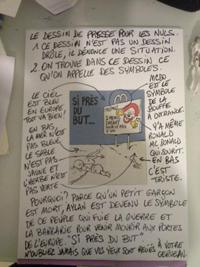 LE DESSIN DE PRESSE POUR LES NULS.
1. CE DESSIN N'EST PAS UN DESSIN
DRÔLE, IL DÉNONCE UNE SITUATION.
2. ON TROUVE DANS CE DESSIN CE
QU'ON APPELLE DES SYMBOLES.
LE CIEL
EST BLEU
EN EUROPE,
TOUT VA BIEN!
EN BAS,
LA MER N'EST
PAS BLEUE,
LE SABLE
N'EST PAS
JAUNE ET
L'HERBE N'EST
PAS VERTE
SI PRÈS
DU BUT...
MCDO
EST LE
SYMBOLE
DE LA
BOUFFE
À OUTRANCE.
Y'A MÊME
RONALD
MC RONALD
QUI SOURIT.
EN BAS
C'EST
TRISTE.
POURQUOI? PARCE QU'UN PETIT GARÇON
EST MORT, AYLAN EST DEVENU LE SYMBOLE
DE CE PEUPLE QUI FUIE LA GUERRE ET
LA BARBARIE POUR VENIR MOURIR AUX PORTES
DE L'EUROPE. "SI PRÈS DU BUT"
N'OUBLIEZ JAMAIS QUE VOS YEUX SONT RELIÉS À VOTRE
CERVEAU.